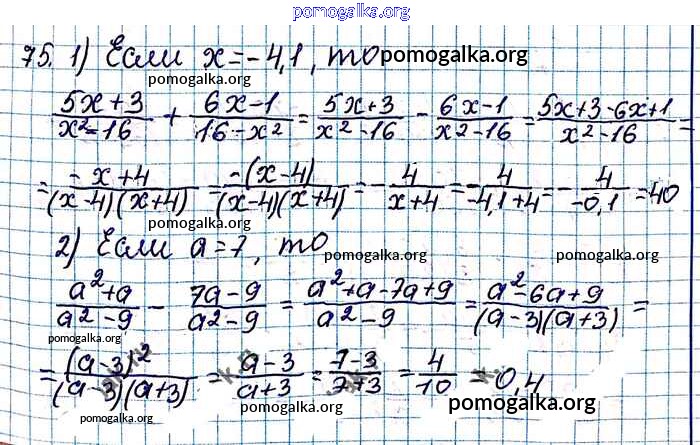 pomogalka.org
75. 1) Если x = -4,1, то pomogalka.org
pomogalka.org
(5x+3)/(x²-16) + (6x-1)/(16-x²) = (5x+3)/(x²-16) - (6x-1)/(x²-16) = (5x+3-6x+1)/(x²-16) =
= (-x+4)/((x-4)(x+4)) = (-(x-4))/((x-4)(x+4)) = -4/(x+4) = -4/(-4,1+4) = -4/(-0,1) = 40
pomogalka.org pomogalka.org
2) Если a=7, то
pomogalka.org pomogalka.org
(a²+a)/(a²-9) - (7a-9)/(a²-9) = (a²+a-7a+9)/(a²-9) = (a²-6a+9)/((a-3)(a+3)) =
pomogalka.org
= (a-3)²/((a-3)(a+3)) = (a-3)/(a+3) = (7-3)/(7+3) = 4/10 = 0,4
pomogalka.org pomogalka.org pomogalka.org